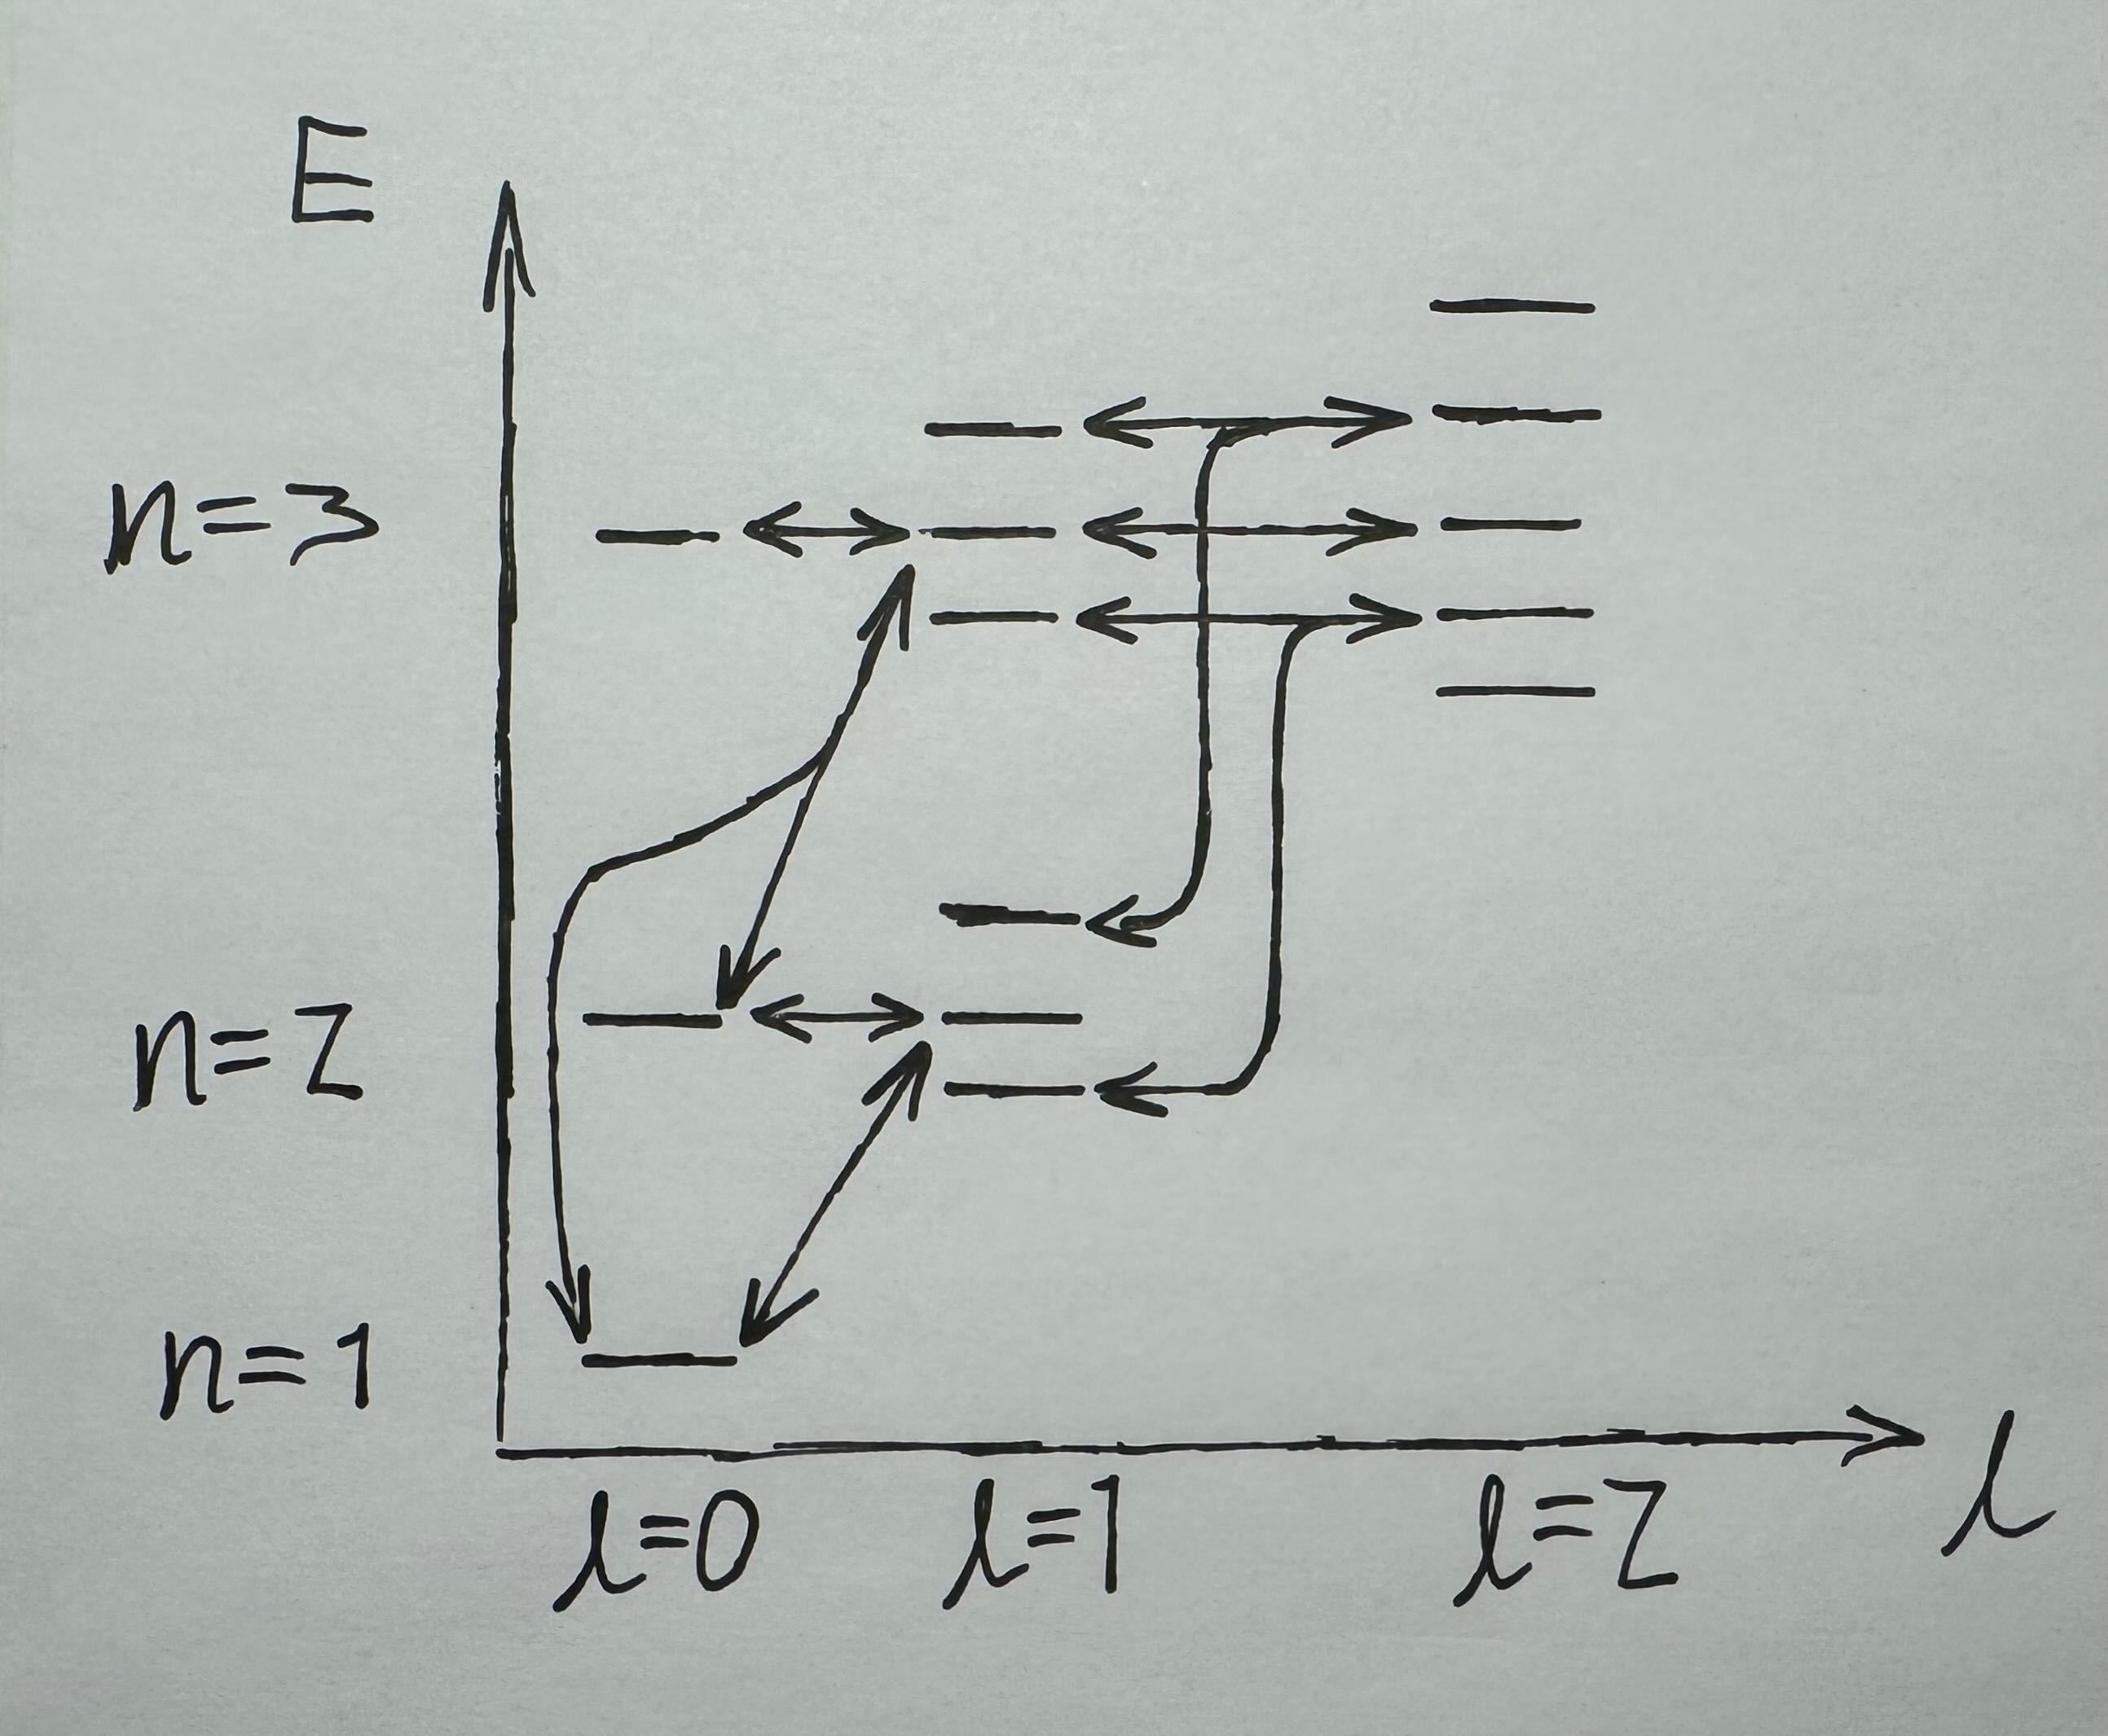 E
n=3
n=2
n=1
l=0 l=1 l=2 l